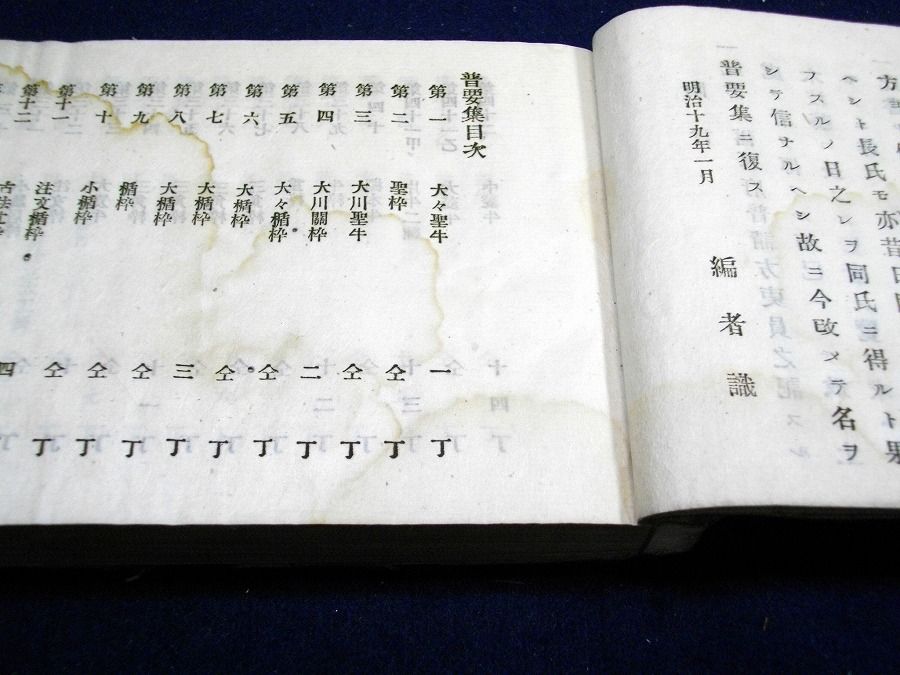 ヘシト長氏モ亦昔日
ヘシト長氏モ亦
レヲ同氏ニ得ルト果
シテ信ナルヘシ故ニ今改メテ名ヲ
普要集ニ復ス
明治十九年一月
編者識
普要集目次
第一 大々聖牛 一丁
第二 聖枠 仝丁
第三 大川聖牛 仝丁
第四 大川關枠 二丁
第五 大々楯枠 仝丁
第六 大楯枠 仝丁
第七 大楯枠 仝丁
第八 大楯枠 三丁
第九 楯枠 仝丁
第十 小楯枠 仝丁
第十一 注文楯枠 仝丁
第十二 四丁